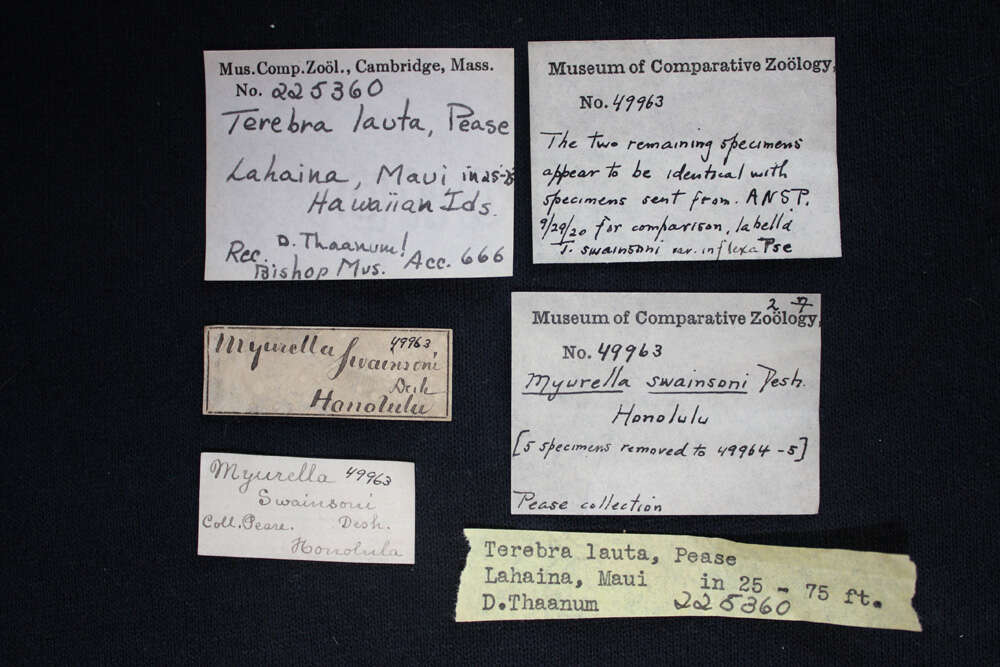 Mus.Comp.Zoöl., Cambridge, Mass.
No. 225360
Terebra lauta, Pease
Lahaina, Maui in 25-
Hawaiian Ids.
Rec. D. Thaanum!
Bishop Mus. Acc. 666
Museum of Comparative Zoölogy,
No. 49963
The two remaining specimens
appear to be identical with
specimens sent from. ANSP.
9/29/20 for comparison, labelld
T. swainsoni var. inflexa Pse
Myurella 49963
Swainsoni
Desh
Honolulu
2
Museum of Comparative Zoölogy,
No. 49963
Myurella swainsoni Desh.
Honolulu
[5 specimens removed to 49964-5]
Pease collection
Myurella 49963
Swainsoni
Coll. Pease. Desh.
Honolula
Terebra lauta, Pease
Lahaina, Maui in 25 - 75 ft.
D.Thaanum 225360